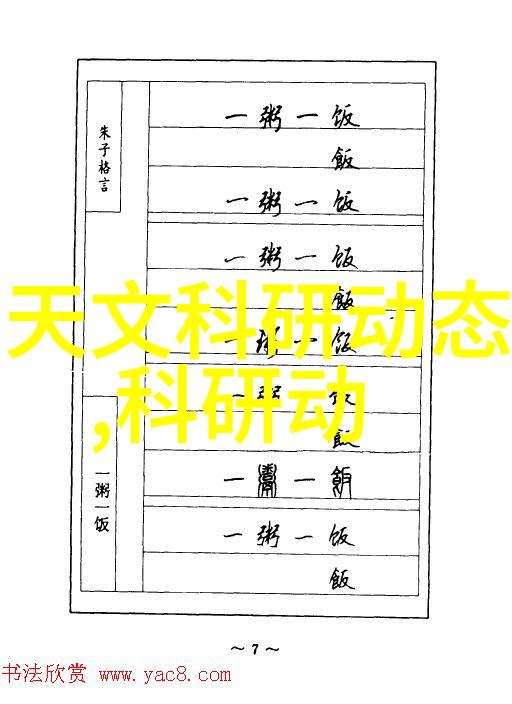 朱子格言
一粥一饭
一粥一饭
飯
一粥一饭
一粥一饭
飯
一粥一饭
一粥一饭
飯
一粥一飯
一粥一饭
飯
天文科研动态
,科研动
～7～
书法欣赏 www.yac8.com